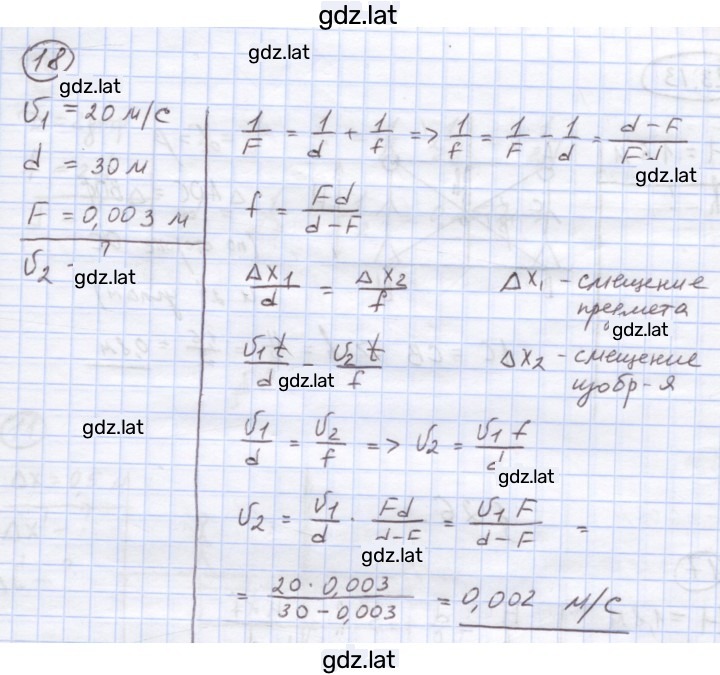 gdz.lat
18 gdz.lat
gdz.lat
υ₁ = 20 м/с
d = 30 м
F = 0,003 м
υ₂ - ?
gdz.lat
1/F = 1/d + 1/f => 1/f = 1/F - 1/d = (d-F)/(F·d)
gdz.lat
f = Fd/(d-F)
Δx₁/d = Δx₂/f
Δx₁ - смещение
предмета
gdz.lat
υ₁t/d = υ₂t/f
gdz.lat
Δx₂ - смещение
изобр-я
gdz.lat
υ₁/d = υ₂/f => υ₂ = υ₁f/d
gdz.lat
υ₂ = υ₁/d · Fd/(d-F) = υ₁F/(d-F) =
gdz.lat
= (20·0,003)/(30-0,003) = 0,002 м/с
gdz.lat